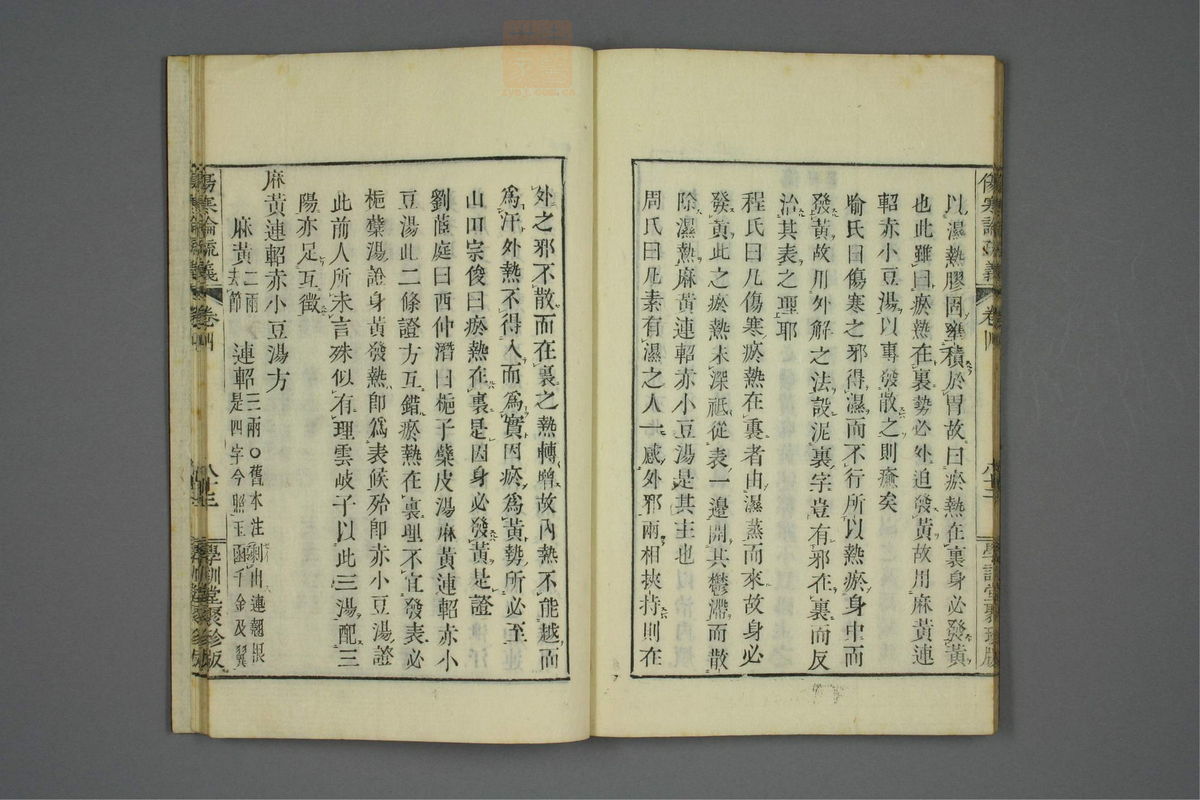 以濕熱膠固壅積於胃故曰瘀熱在裏身必發黃
也此雖曰瘀熱在裏勢必外迫發黃故用麻黃連
軺赤小豆湯以專發散之則癒矣
喻氏曰傷寒之邪得濕而不行所以熱瘀身中而
發黃故用外解之法設泥裏字豈有邪在裏而反
治其表之理耶
程氏曰凡傷寒瘀熱在裏者由濕蒸而來故身必
發黃此之瘀熱未深祗從表一邊開其鬱滯而散
除濕熱麻黃連軺赤小豆湯是其主也
周氏曰凡素有濕之人一感外邪兩相挾持則在
外之邪不散而在裏之熱轉增故內熱不能越而
為汗外熱不得入而為實因瘀為黃勢所必至
山田宗俊曰瘀熱在裏是因身必發黃是證
劉蓝庭曰西仲潛曰梔子蘗皮湯麻黃連軺赤小
豆湯此二條證方互錯瘀熱在裏理不宜發表必
梔蘗湯證身黃發熱卽為表候殆卽赤小豆湯證
此前人所未言殊似有理雲岐子以此三湯配三
陽亦足互徵
麻黃連軺赤小豆湯方
麻黃二兩去節 連軺二兩○舊本注剩由連翹根是四字今照玉函千金及翼
傷寒論疏義 卷四 八十三 學訓堂聚珍版